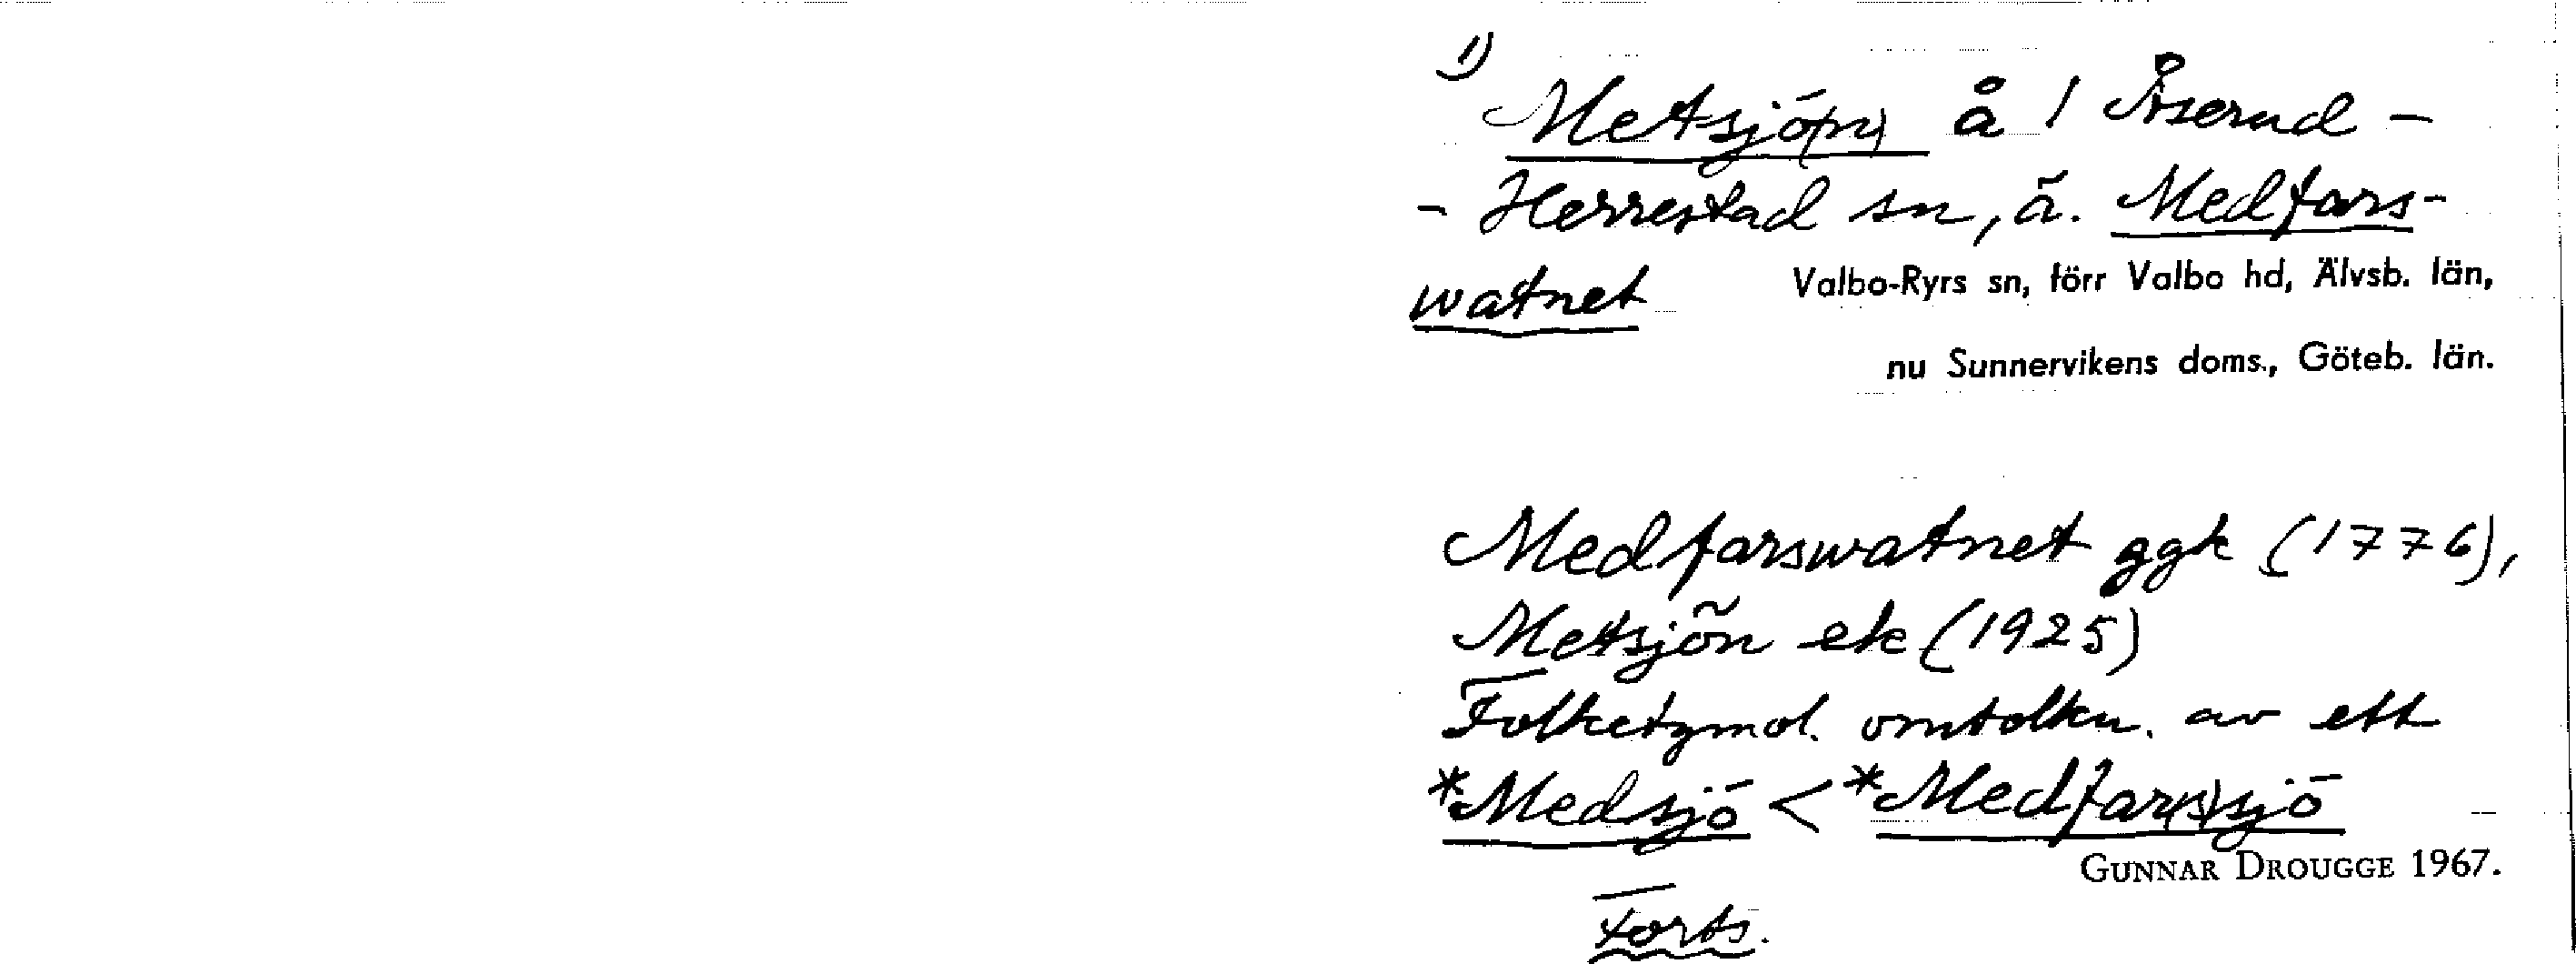 1)
Metsjö(n) å / Åserud -
- Herrestad sn, ä. Medfars-
watnet Valbo-Ryrs sn, förr Valbo hd, Älvsb. län,
nu Sunnervikens doms., Göteb. län.
Medfarswatnet ggk (1776),
Metsjön ek (1925)
Folketymol. omtolkn. av ett
*Medsjö < *Medfar(s)sjö
GUNNAR DROUGGE 1967.
Forts.